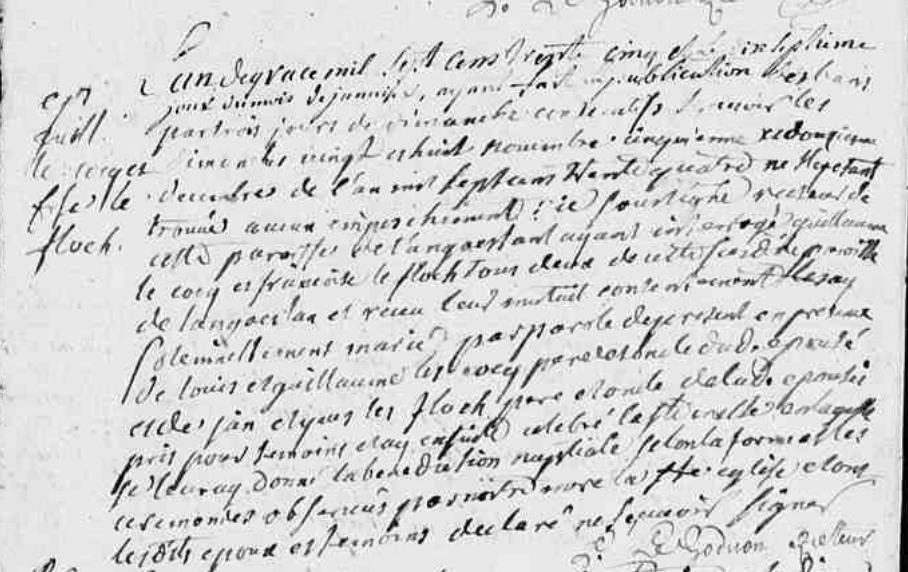 L'an de grace mil sept cens trente cinq et le dixseptieme
epx jour du mois de janvier, ayant fait la publication des bans
Guill. par trois jours de dimanche consecutifs scavoir les
le cocq et dimanches vingt et huit novembre cinquieme et douzieme
fse le decembre de l'an mil sept cens trente quatre ne s'y etant
floch. trouvé aucun empeschement, je soussigné recteur de
cette paroisse de langoestan ayant interrogé guillaume
le cocq et françoise le floch tous deux de cette susdite paroisse
de langoestan et receu leur mutuel consentement les ay
solemnellement mariés par parole de present en presence
de louis et guillaume les cocq pere et oncle dud. epousé
et de jan et yves les floch pere et oncle de lad. epousée
pris pour temoins et ay ensuite celebré la ste messe en laquelle
je leur ay donné la benediction nuptiale selon la forme et les
ceremonies observées par nôtre mere la ste eglise et ont
lesdits epoux et temoins declaré ne sçavoir signer
Le Goduon recteur